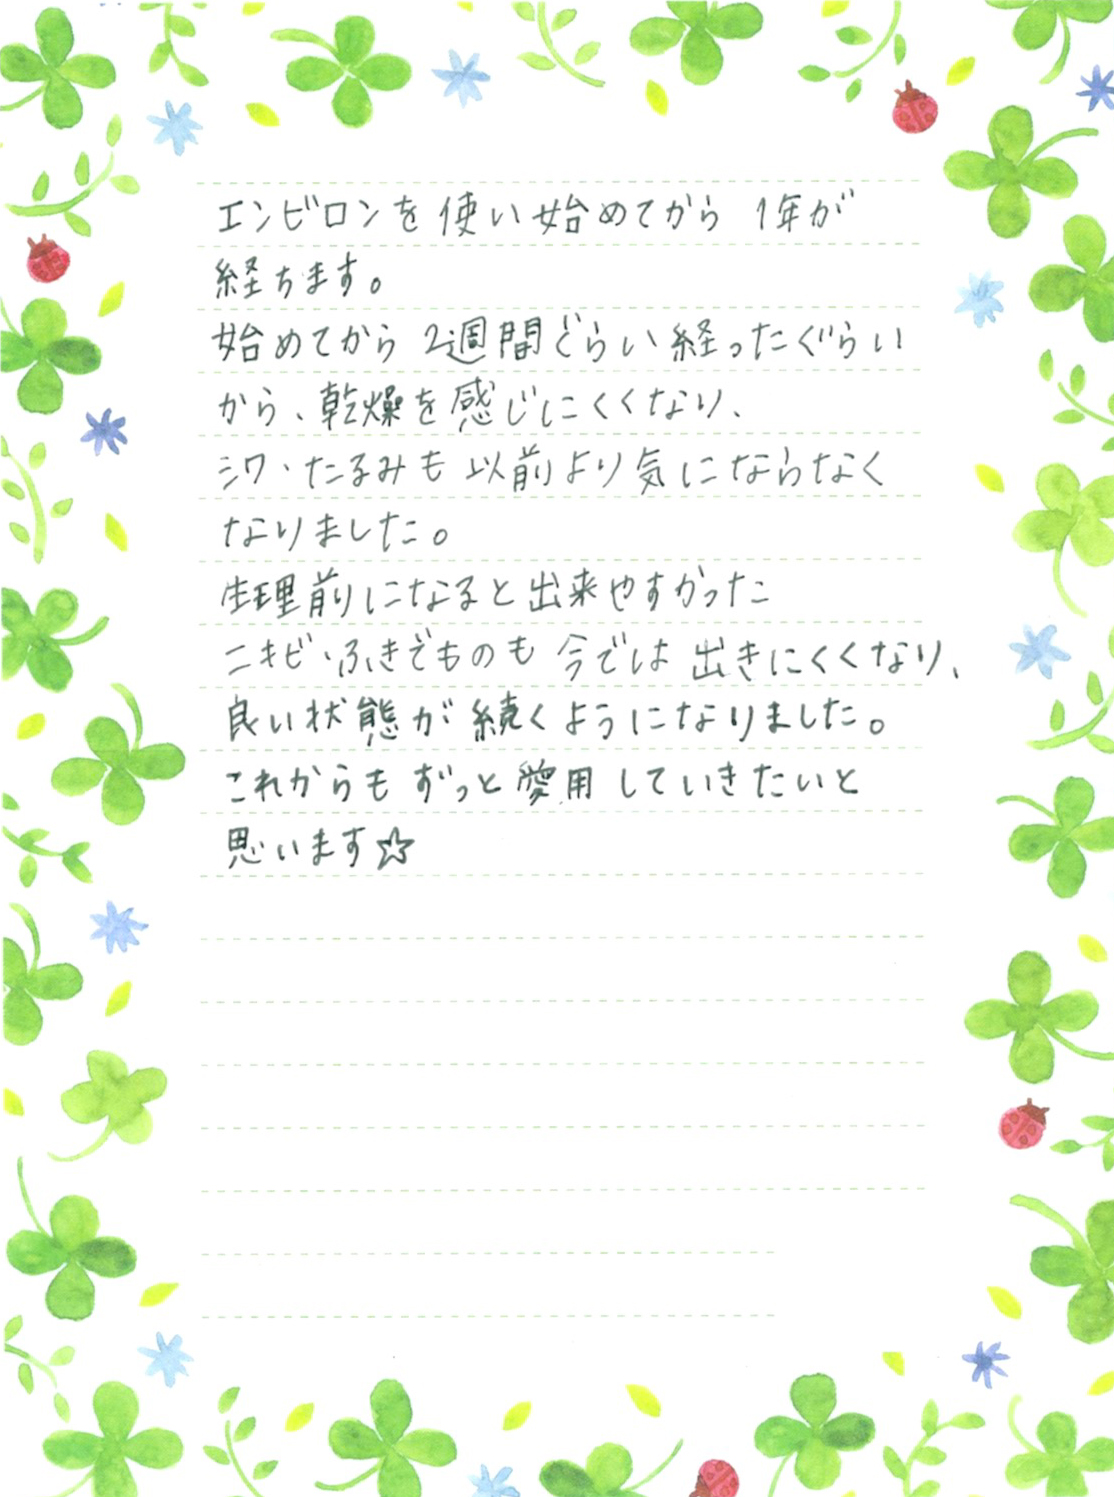 エンビロンを使い始めてから 1年が
経ちます。
始めてから 2週間どらい経ったぐらい
から、乾燥を感じにくくなり、
シワ・たるみも以前より気にならなく
なりました。
生理前になると出来やすかった
ニキビ・ふきでものも今では出きにくくなり、
良い状態が続くようになりました。
これからもずっと愛用していきたいと
思います☆